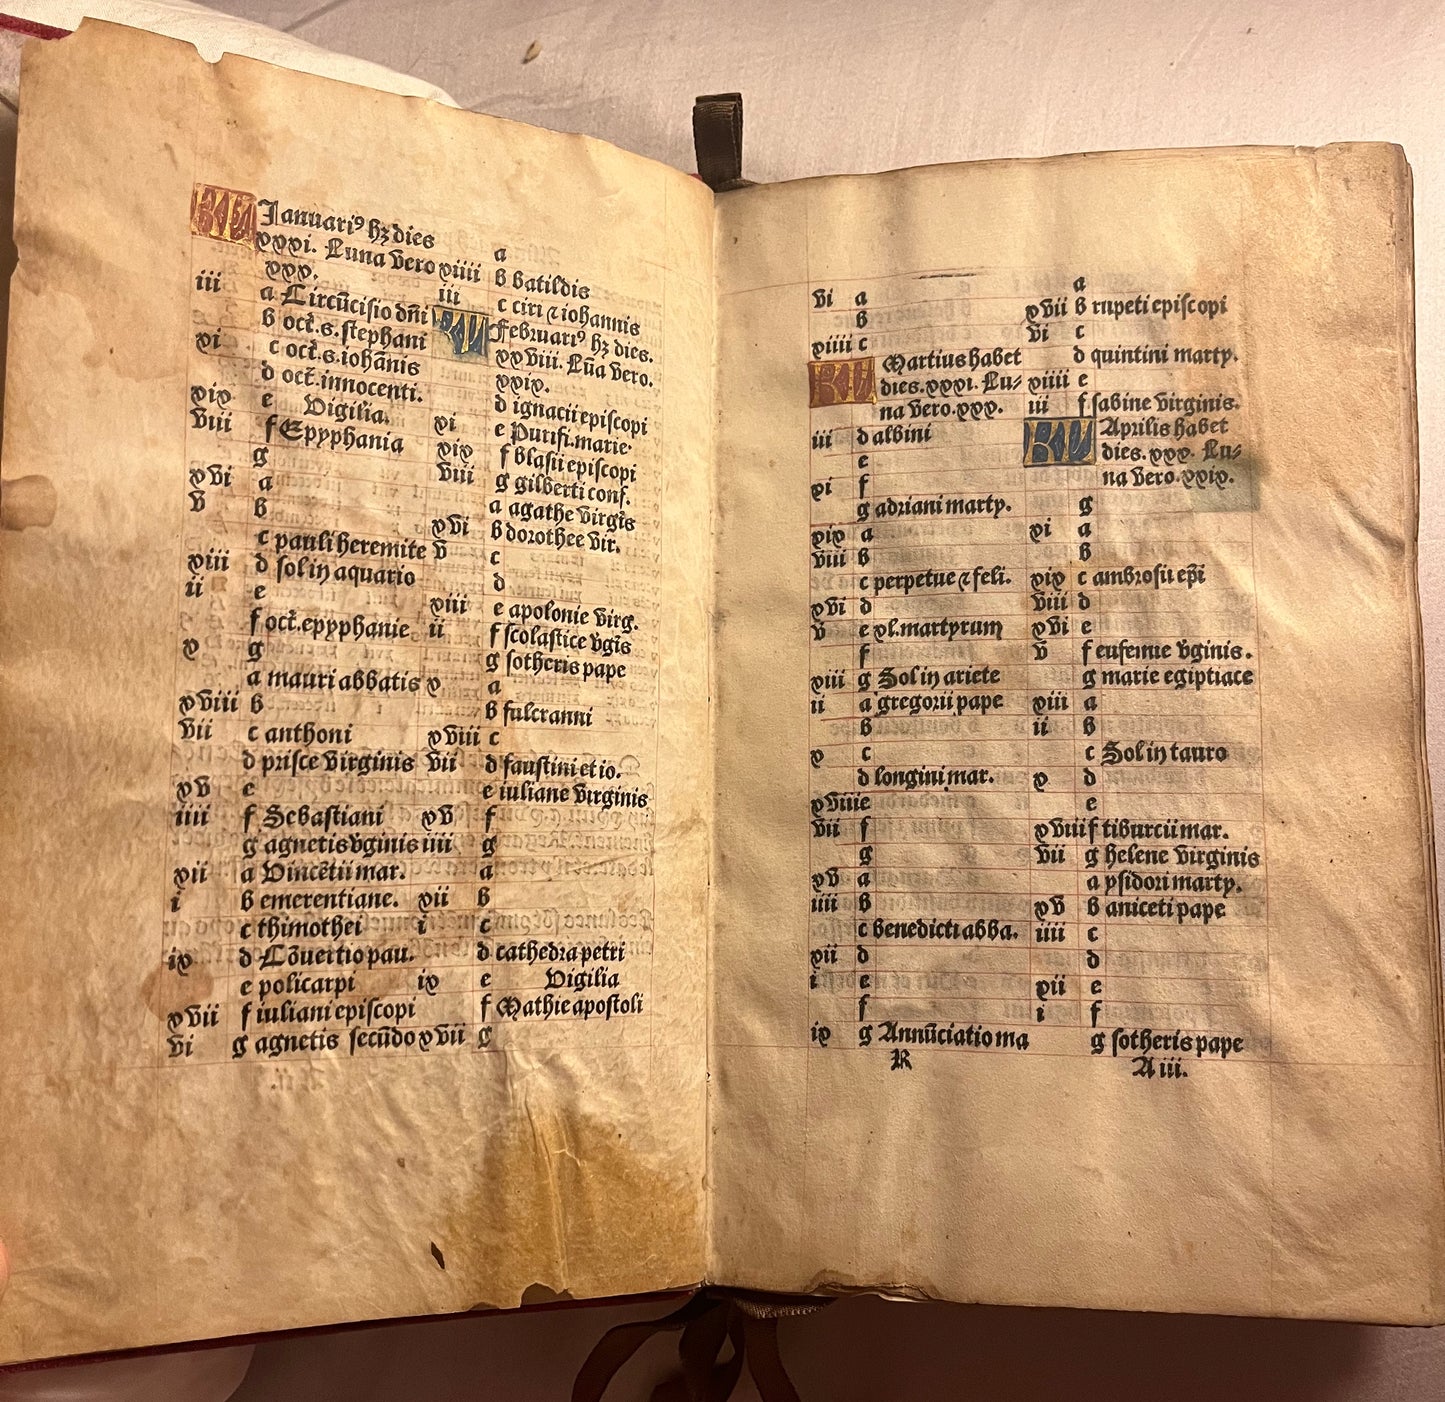 KL Januari⁹ hꝫ dies
xxxi. Luna vero
xxx.
iii a Circũcisio dñi
b oct̃.s.stephani
vi c oct̃.s.iohãnis
d oct̃.innocenti.
xix e Vigilia.
viii f Epyphania
g
xvi a
v b
c pauli heremite
xiii d sol in aquario
ii e
f oct̃.epyphanie
x g
a mauri abbatis
xviii b
vii c anthoni
d prisce virginis
xv e
iiii f Sebastiani
g agnetis v̓ginis
xii a Vincẽtii mar.
i b emerentiane.
c thimothei
ix d Cõuertio pau.
e policarpi
xvii f iuliani episcopi
vi g agnetis secũdo
a
xiiii b batildis
iii c ciri ⁊ iohannis
KL Februari⁹ hꝫ dies.
xxviii. Lũa vero.
xxix.
d ignacii episcopi
xi e Purifi.marie.
xix f blasii episcopi
viii g gilberti conf.
a agathe virgĩs
xvi b dorothee vir.
v c
d
xiii e apolonie virg.
ii f scolastice v̓gĩs
g sotheris pape
x a
b fulcranni
xviii c
vii d faustini et io.
e iuliane virginis
xv f
iiii g
a
xii b
i c
d cathedra petri
ix e Vigilia
f Mathie apostoli
xvii g
vi a
b
xiiii c
KL Martius habet
dies.xxxi. Lu-
na vero.xxx.
iii d albini
e
xi f
g adriani marty.
xix a
viii b
c perpetue ⁊ feli.
xvi d
v e xl.martyrum
f
xiii g Sol in ariete
ii a gregorii pape
b
x c
d longini mar.
xviii e
vii f
g
xv a
iiii b
c benedicti abba.
xii d
i e
f
ix g Annũciatio ma
R
a
xvii b rupeti episcopi
vi c
d quintini marty.
xiiii e
iii f sabine virginis.
KL Aprilis habet
dies.xxx. Lu-
na vero.xxix.
g
xi a
b
xix c ambrosii ep̃i
viii d
xvi e
v f eufemie v̓ginis.
g marie egiptiace
xiii a
ii b
c Sol in tauro
x d
e
xviii f tiburcii mar.
vii g helene virginis
a ysidori marty.
xv b aniceti pape
iiii c
d
xii e
i f
g sotheris pape
A iii.